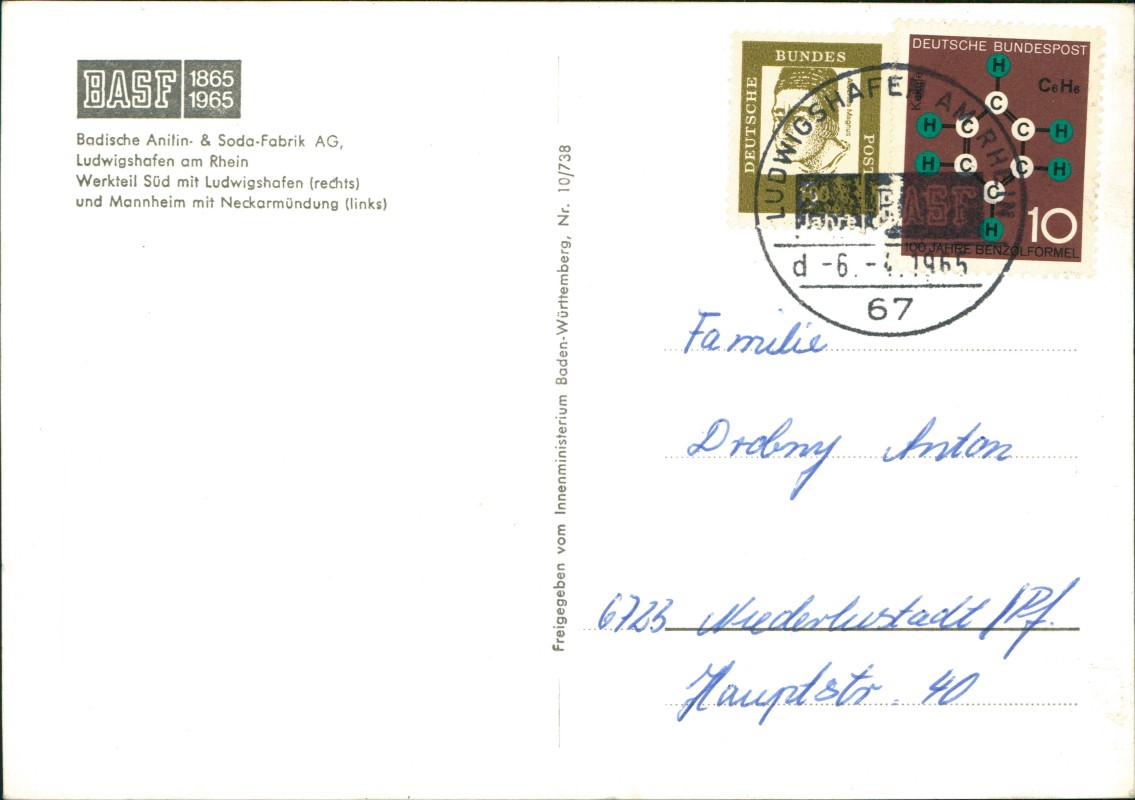 BASF 1865
1965
Badische Anilin- & Soda-Fabrik AG,
Ludwigshafen am Rhein
Werkteil Süd mit Ludwigshafen (rechts)
und Mannheim mit Neckarmündung (links)
Freigegeben vom Innenministerium Baden-Württemberg, Nr. 10/738
DEUTSCHE
BUNDES
POST
Magnus
DEUTSCHE BUNDESPOST
Kekulé
C₆H₆
H
C
H C C H
H C C H
C
H
10
100 JAHRE BENZOLFORMEL
LUDWIGSHAFEN AM RHEIN
Jahre BASF
d -6.-4.1965
67
Familie
Drobny Anton
6723 Niederlustadt /Pf.
Hauptstr. 40